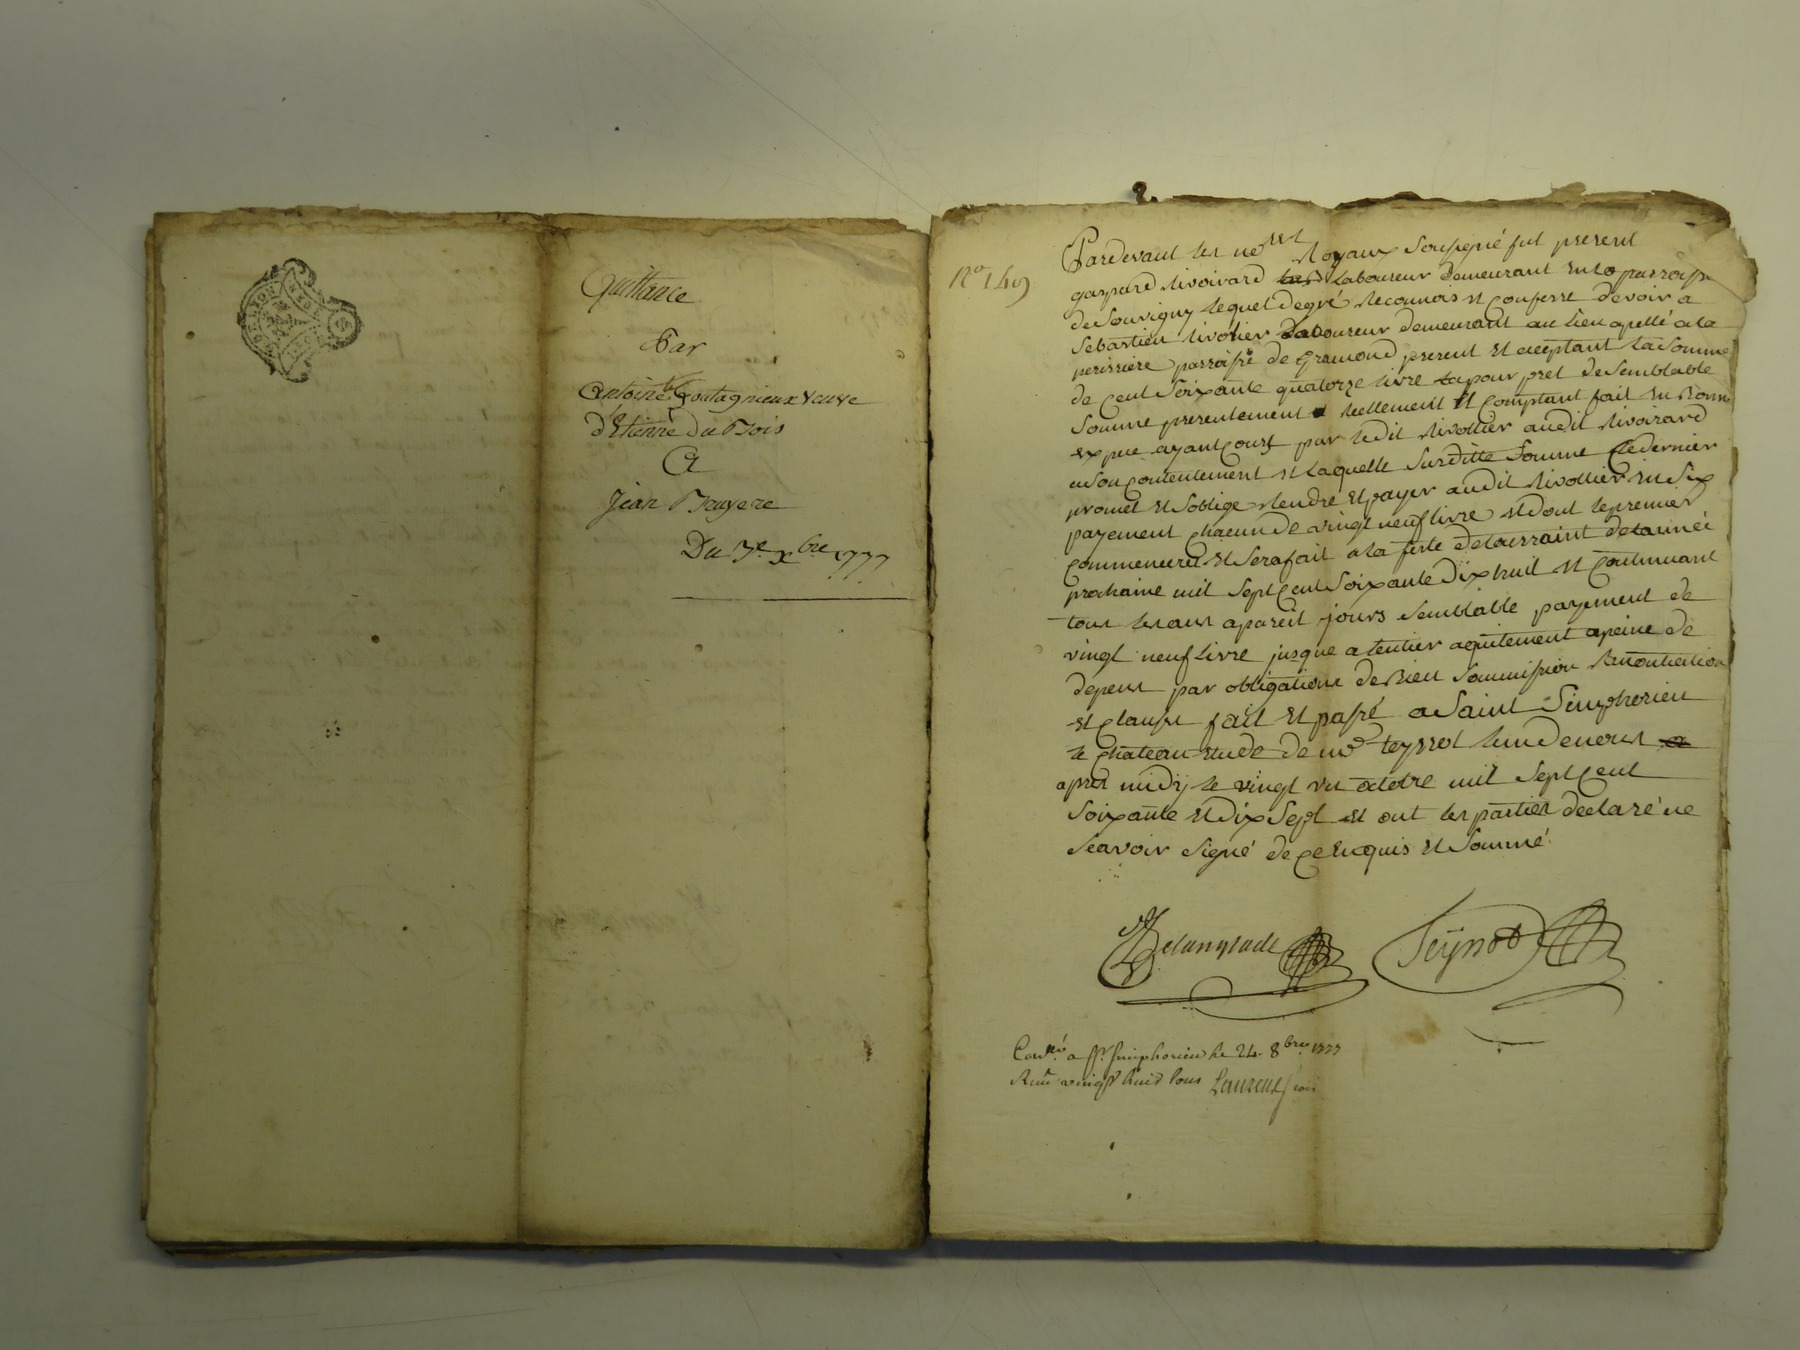 Quittance
Par
Antoinette Fontagnieux veuve
d'Etienne Du Bois
A
Jean Bruyere
Du 7e Xbre 1777
GEN DE LYON
No 149
Pardevant les nores Royaux Soussigné fut present
gaspard Rivoirard Laboureur demeurant en la parroisse
de Souvigny lequel de gré Reconnois et Confesse devoir a
Sebastien Rivollier Laboureur demeurant au lieu apellé a la
perissiere parroisse de Gramond present et aceptant la Somme
de Cent Soixante quatorze livre pour pret de Semblable
Somme presentement Reellement et Comptant fait en Bonne
espece ayant Cours par ledit Rivollier audit Rivoirard
a Son Contentement et laquelle Surditte Somme Ce dernier
promet et S'oblige Rendre et payer audit Rivollier en Six
payement Chacun de vingt neuf livre et dont le premier
Commencera et Sera fait a la fete de toussaint de l'année
prochaine mil Sept Cent Soixante Dix huit et Continuant
tous les ans a pareil jours Semblable payement de
vingt neuf livre jusque a l'entier aquitement a peine de
depens par obligations de Bien Sommission Renontiation
et Clauses fait et passé a Saint Simphorien
le Chateau etude de me teyssot l'un de nous
apres midy le vingt un octobre mil Sept Cent
Soixante et Dix Sept et ont les parties declaré ne
Scavoir Signé de Ce Enquis et Sommé
Delanglade Teyssot
Conlé a St Simphorien le 24. 8bre 1777
Reçu vingt huit sous Laurenson